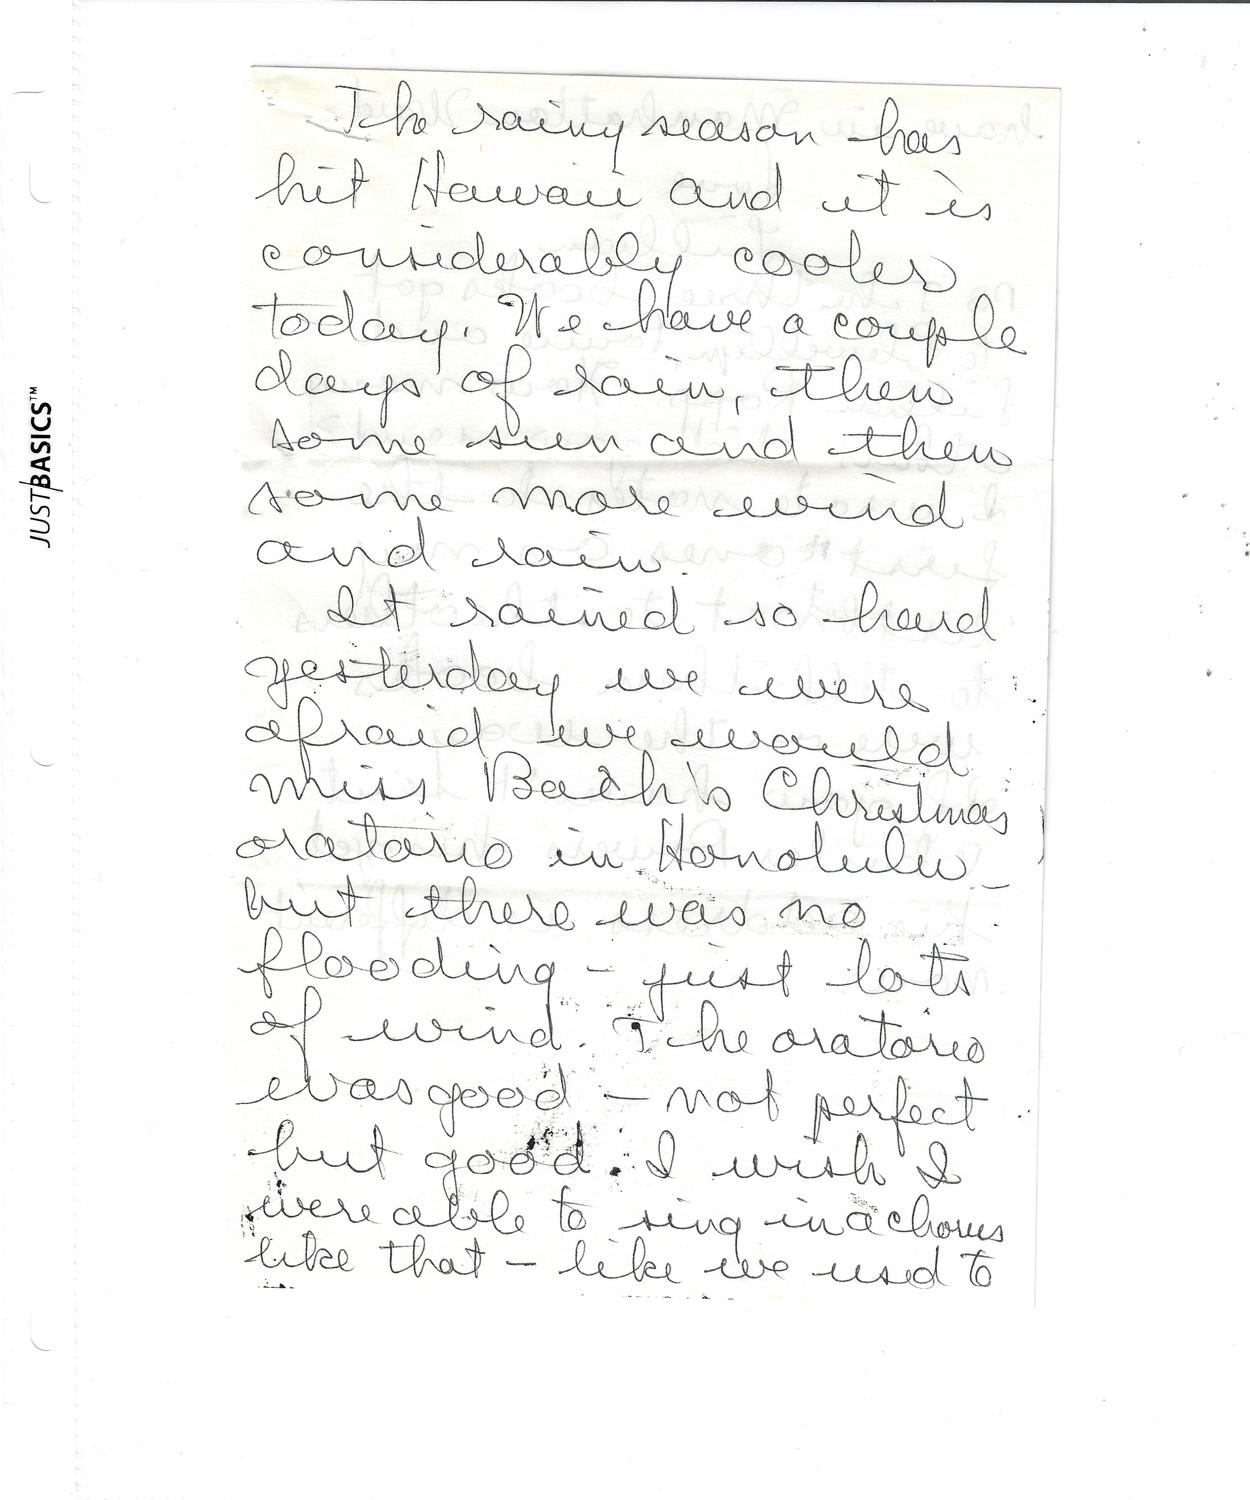 The rainy season has
hit Hawaii and it is
considerably cooler
today. We have a couple
days of rain, then
some sun and then
some more wind
and rain.
It rained so hard
yesterday we were
afraid we would
miss Bach's Christmas
oratorio in Honolulu -
but there was no
flooding - just lots
of wind. The oratorio
was good - not perfect
but good. I wish I
were able to sing in a chorus
like that - like we used to
JUST BASICS™